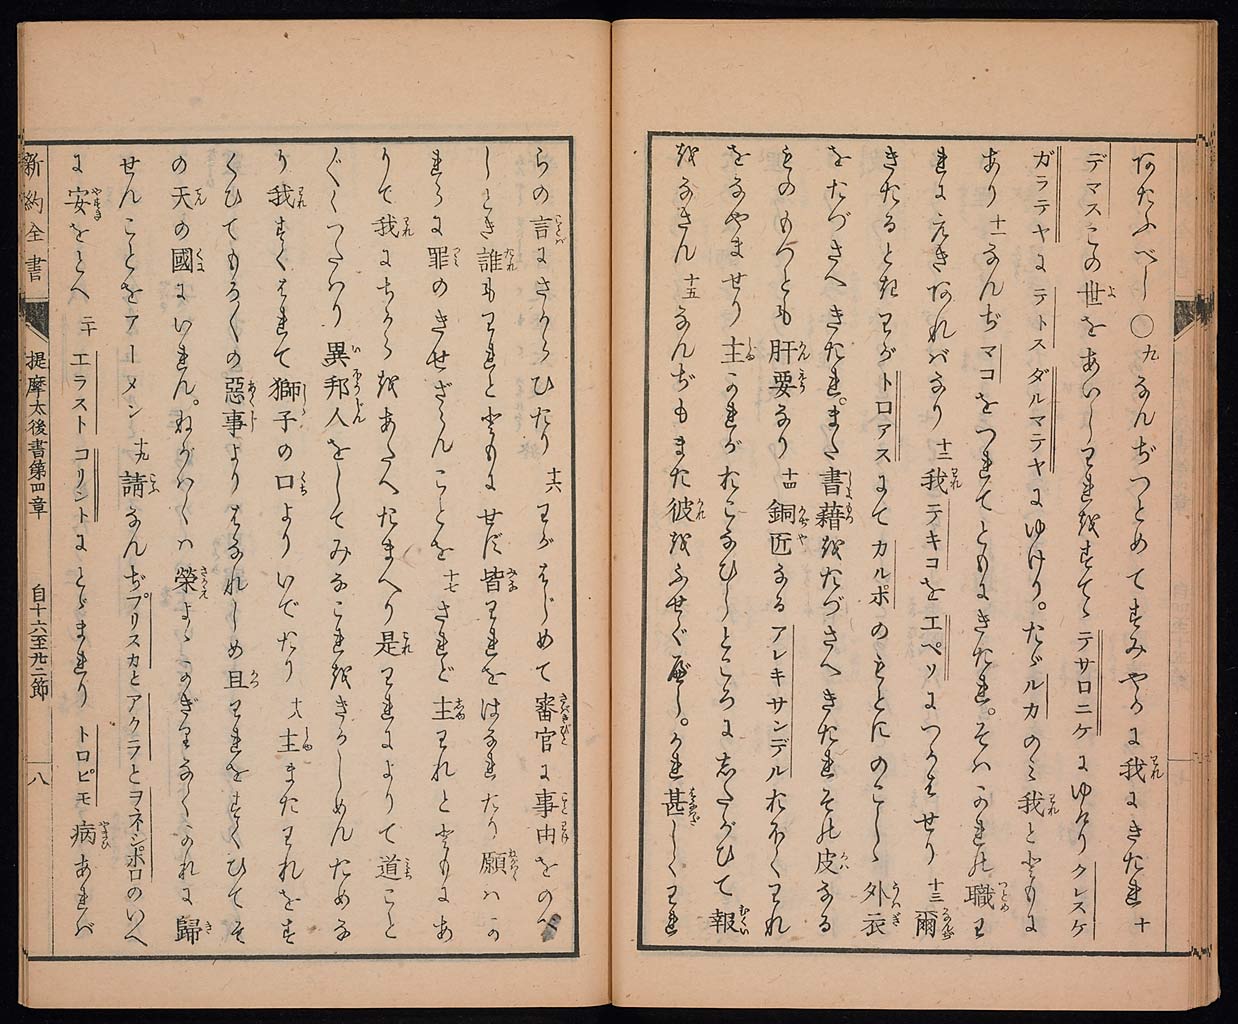 あたふべし〇九なんぢつとめてすみやかに我にきたれ十
デマスこの世をあいしわれをすてゝテサロニケにゆけりクレスケ
ガラテヤにテトスダルマテヤにゆけり。たゞルカのミ我とともに
あり十一なんぢマコをつれてともにきたれ。そハかれの職わ
れにえきあれバなり十二我テキコをエペソにつかはせり十三爾
きたるときわがトロアスにてカルポのもとにのこしゝ外衣
をたづさへきたれ。また書藉をたづさへきたれその皮なる
ものもつとも肝要なり十四銅匠なるアレキサンデルおほくわれ
をなやませり主かれがおこなひしところにしたがひて報
をなさん十五なんぢもまた彼をふせぐべし。かれ甚しくわれ
らの言にさからひたり十六わがはじめて審官に事由をのべ
しとき誰もわれとともにせず皆われをはなれたり願ハか
れらに罪のきせざらんことを十七されど主われとともにあ
りて我にちからをあたへたまへり是われによりて道こと
ぐくつたはり異邦人をしてみなこれをきかしめんためな
り我すくはれて獅子の口よりいでたり十八主またわれをす
くひてもろ〱の惡事よりはなれしめ且われをすくひてそ
の天の國にいれん。ねがハくハ榮よゝかぎりなくかれに歸
せんことをアーメン十九請なんぢプリスカとアクラとヲネシポロのいへ
に安をとへ二十エラストコリントにとゞまれりトロピモ病あれバ
新約全書
提摩太後書第四章
自十六至廿二節
八